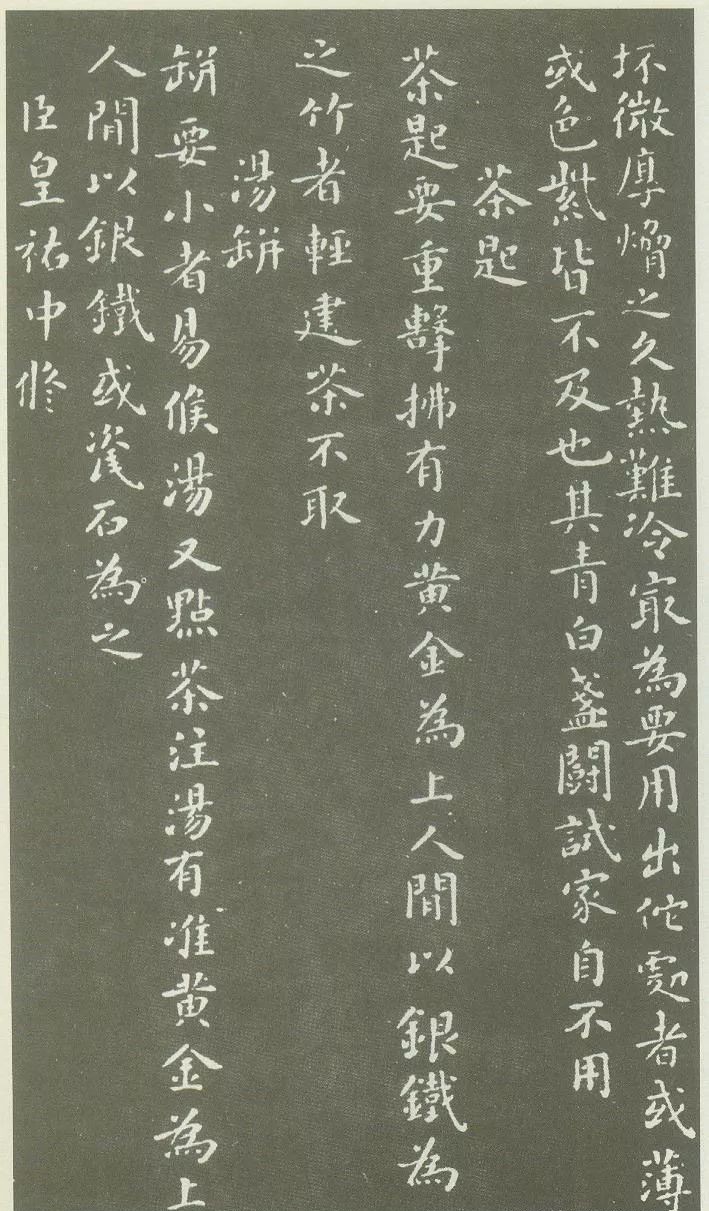 坯微厚熁之久熱難冷㝡為要用出佗處者或薄
或色紫皆不及也其青白盞鬭試家自不用
茶匙
茶匙要重擊拂有力黃金為上人間以銀鐵為
之竹者輕建茶不取
湯缾
缾要小者易候湯又點茶注湯有准黃金為上
人間以銀鐵或瓷石為之
臣皇祐中修